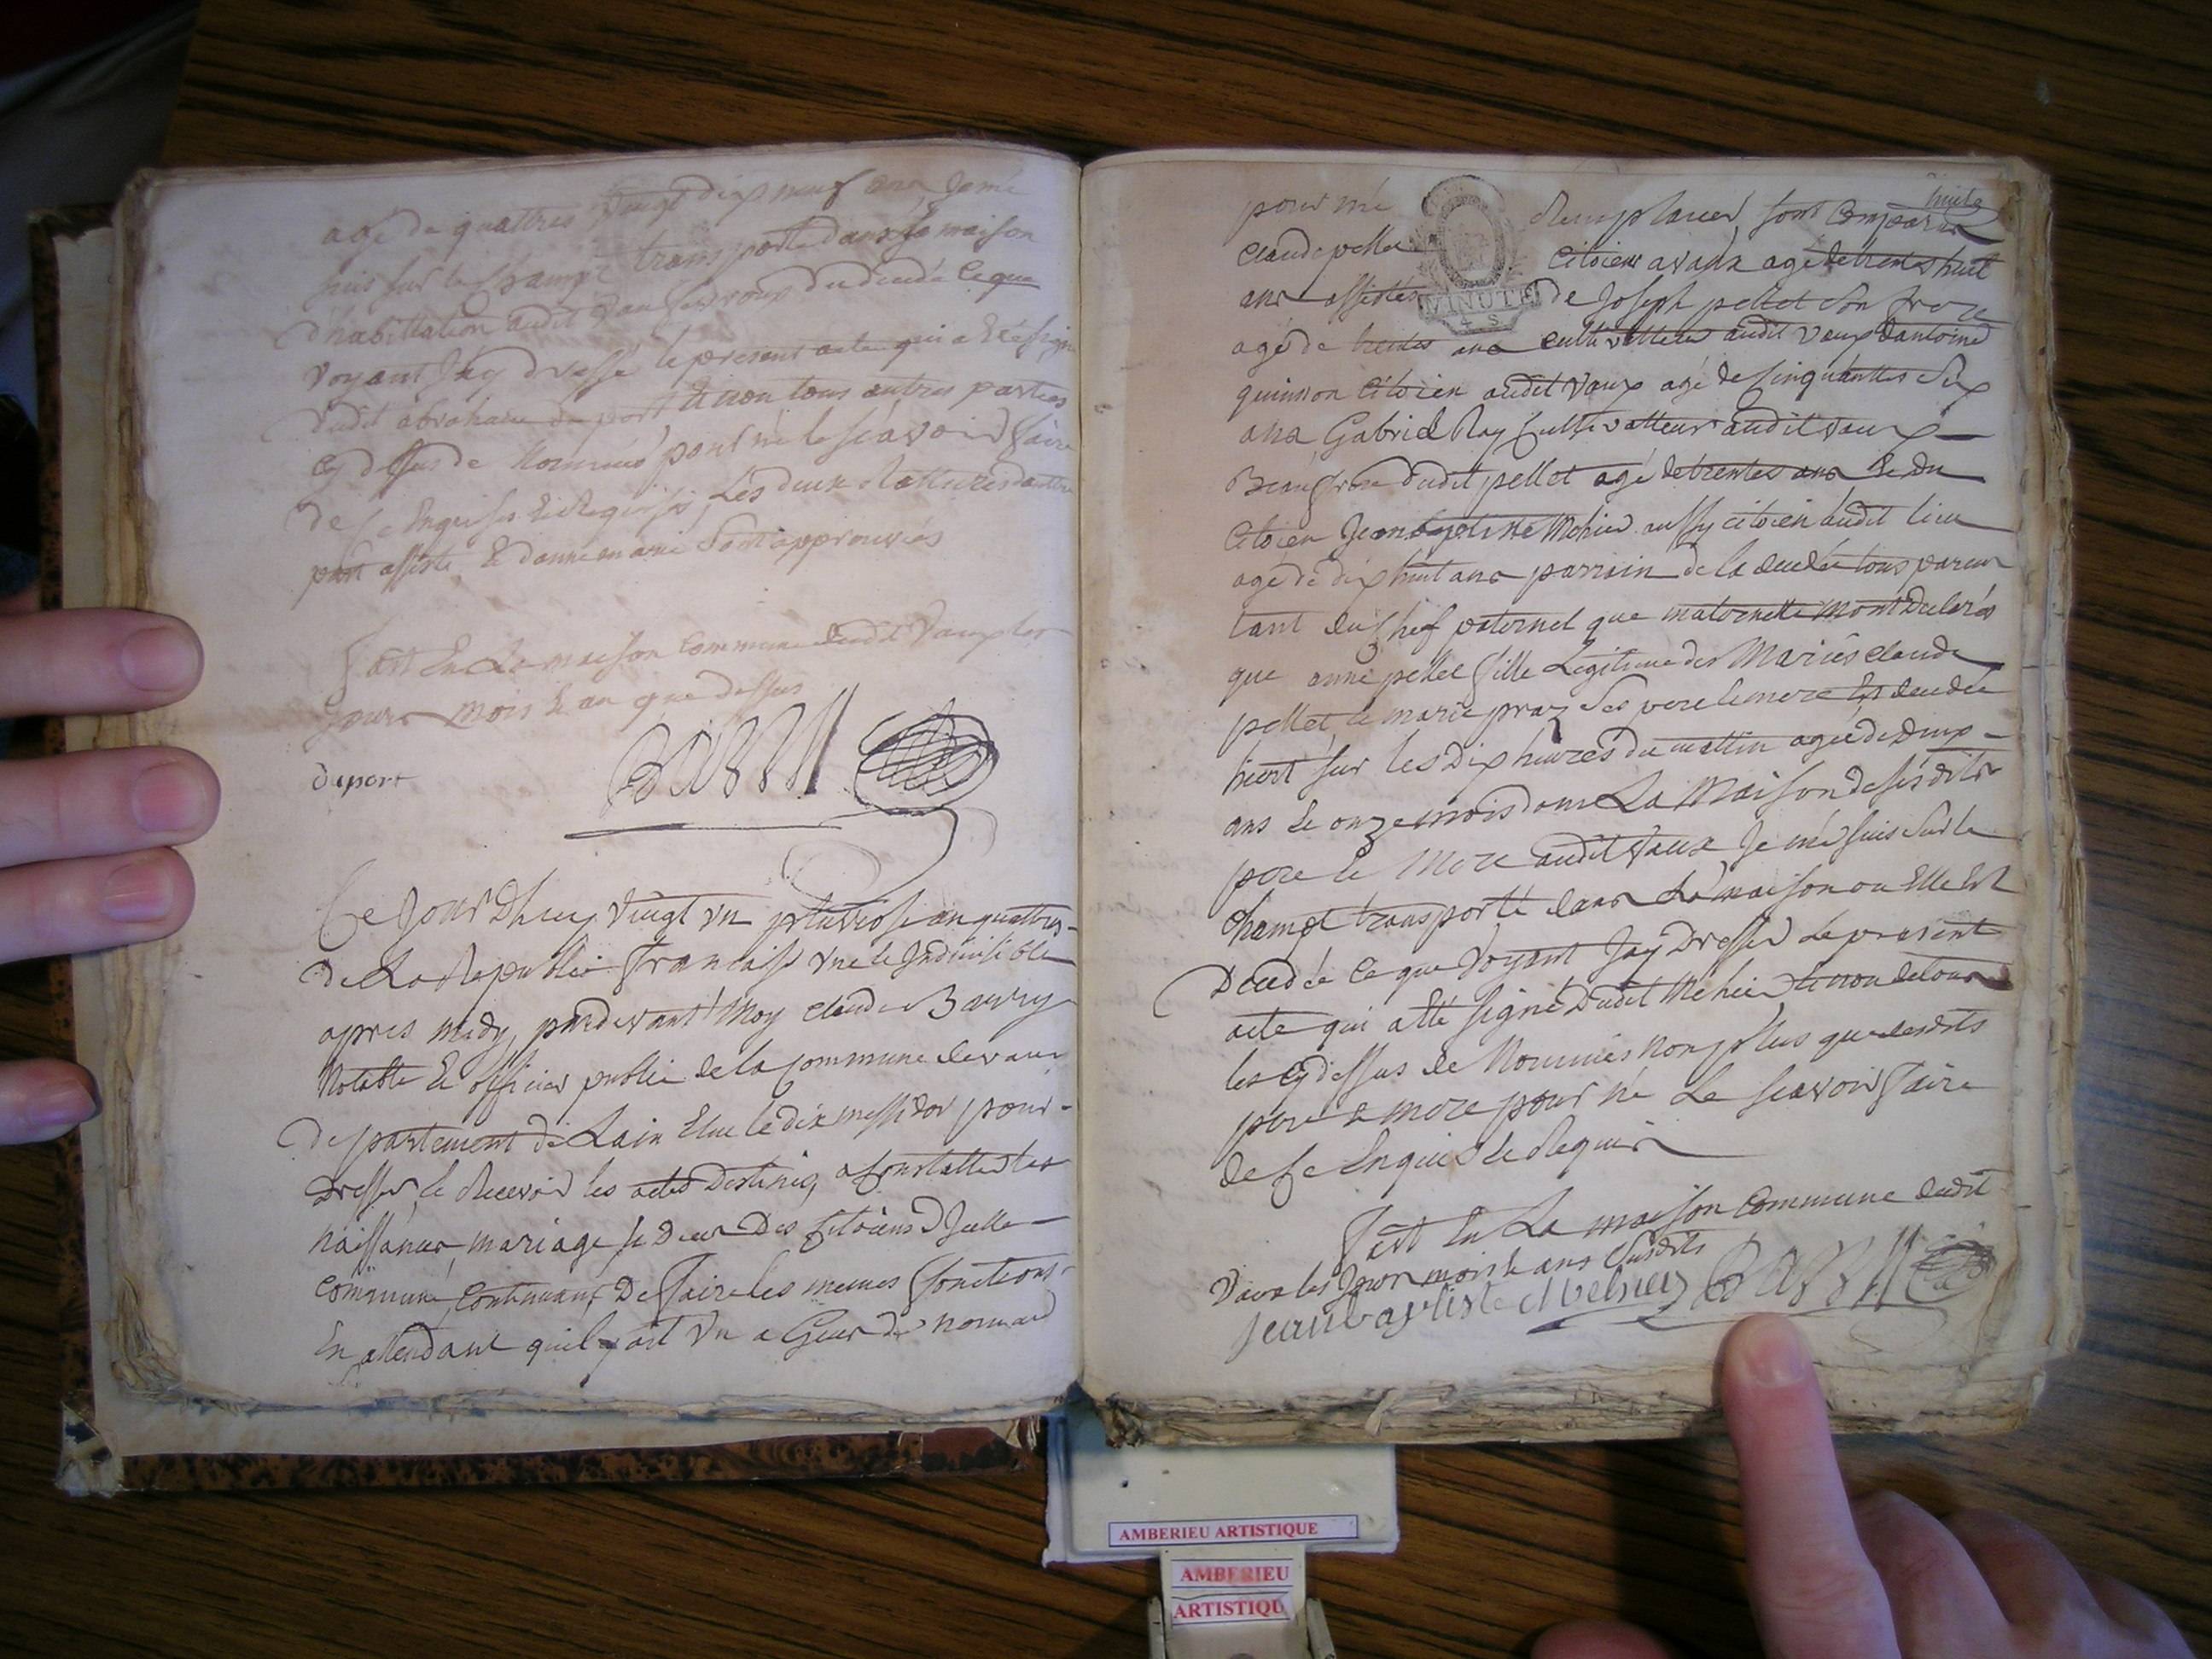 agé de quattres vingt dix neuf ans Je mé
suis sur le Champt transporté dans la maison
d'habittation audit Vaux dudeudé Ce que
Voyant J'ay dressé le present acte qui a Eté signé
dudit abrahame du port & non tous autres parties
Cy dessus de Nommés pour né le sçavoir faire
de Ce Enquises & Requises, Les deux Ratturés
part assisté, & donné en ané Sont approuvés
fait En La maison Commune dudit Vaux les
Jours mois & an que dessus
duport
Ce Jour Dhuy Vingt un pluviose an quattres
de La Republic francaise une & Indivisible
apres midy, pardevant Moy Claude Bavvy
Notable & officier public de la Commune de vaux
departement de Lain Elue le dix messidor pour
dresser & Recevoir les actes Destinés, a Constatter les
Naissances, mariage & Deces Des Citoiens D Jcelle
Commune, Continuant De faire les memes fonctions
En attendant quil y ait Un a Gent de nommé
huite
pour mé Remplacer, sont Comparus
Claude pellet Citoien a vaux agé de trentes huit
ans assistés de Joseph pellet Son frere
MINUTE
4 S
agé de trentes ans Cultivatteur audit Vaux d'antoine
quinson Citoien audit Vaux agé de Cinquanttes Six
ans Gabriel Ray Cultivatteur audit vaux
Beaufrere dudit pellet agé de trentes ans & du
Citoien Jean baptiste Mehier aussy citoien audit lieu
agé de dix huit ans parrain de la deudée tous parens
tant du Chef paternel que maternelle Mont Declarés
que anne pellet fille Legitime des Mariés Claude
pellet, & marie praz Ses pere & mere Est deudée
hiert sur les Dix heures du mattin agée de Deux
ans & onze mois dans La Maison de ses dits
pere & Mere audit Vaux Je mé suis Sur le
Champt transporté dans La maison ou Elle Est
Deudée Ce que Voyant J'ay Dresser Le present
acte qui a Eté signé Dudit Mehier & non de tous
les Cy dessus de Nommés non plus que desdits
pere & mere pour né Le sçavoir faire
de Ce Enquis & Requis
fait En La maison Commune dudit
Vaux les Jour mois & ans Susdits
Jean baptiste Mehier
AMBERIEU ARTISTIQUE
AMBERIEU
ARTISTIQU